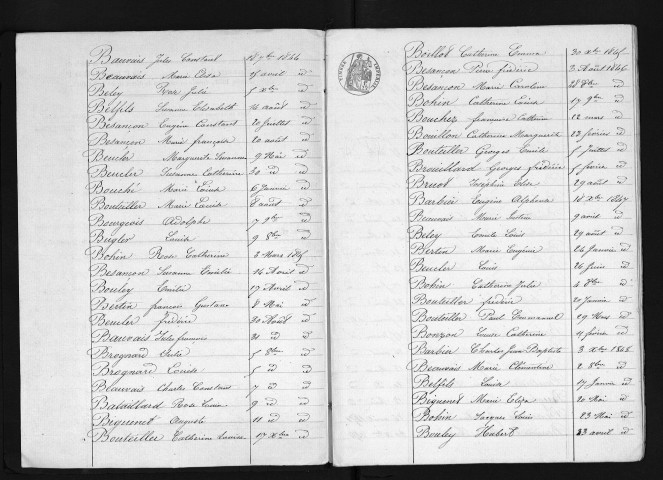 Bauvais Jules Constant 18 9bre 1844
Beauvais Marie Elisa 15 avril id
Beley Rose Julie 5 Xbre id
Belfils Suzanne Elisabeth 14 août id
Besançon Eugène Constant 20 Juillet id
Besançon Marie françoise 20 août id
Beucler Marguerite Suzanne 9 Mai id
Beucler Suzanne Catherine 30 id id
Bouché Marie Louise 6 Janvier id
Bouteiller Marie Louise 8 août id
Bourgeois Adolphe 7 9bre id
Bugler Louise 9 8bre id
Bohin Rose Catherine 3 Mars 1845
Besançon Suzanne Emélie 14 Avril id
Bouley Emélie 17 Avril id
Bertin françois Gustave 8 Mai id
Beucler frédéric 30 Août id
Beauvais Jules francois 31 id id
Brognard Julie 5 8bre id
Brognard Louise 5 id id
Beauvais Charles Constant 7 id id
Bataillard Rose Louise 9 id id
Biguenet Auguste 11 id id
Bouteiller Catherine Louise 17 Xbre id
Boillot Catherine Emma 30 Xbre 1845
Besançon Pierre frédéric 3 Août 1846
Besançon Marie Caroline 28 8bre id
Bohin Catherine Louise 17 9bre id
Bouchez francoise Catherine 12 mars id
Bouillon Catherine Marguerite 13 février id
Bouteiller Georges Emile 5 Juillet id
Brouillard Georges frédéric 5 février id
Bruot Joséphine Elise 29 août id
Barbier Eugène Alphonse 18 Xbre 1847
Beauvais Marie Justine 9 avril id
Beley Emile Louis 29 août id
Bertin Marie Eugénie 26 Janvier id
Beucler Louis 26 Juin id
Bohin Catherine Julie 4 8bre id
Bouteiller frédéric 20 Janvier id
Bouteiller Paul Emmanuel 29 Mars id
Bonzon Louise Catherine 11 février id
Barbier Charles Jean Baptiste 3 Xbre 1848
Beauvais Marie Clémentine 2 8bre id
Belfils Louise 17 Janvier id
Biguenet Marie Eliza 20 Mai id
Bohin Jacques Louis 23 Mai id
Bouley Hubert 23 avril id